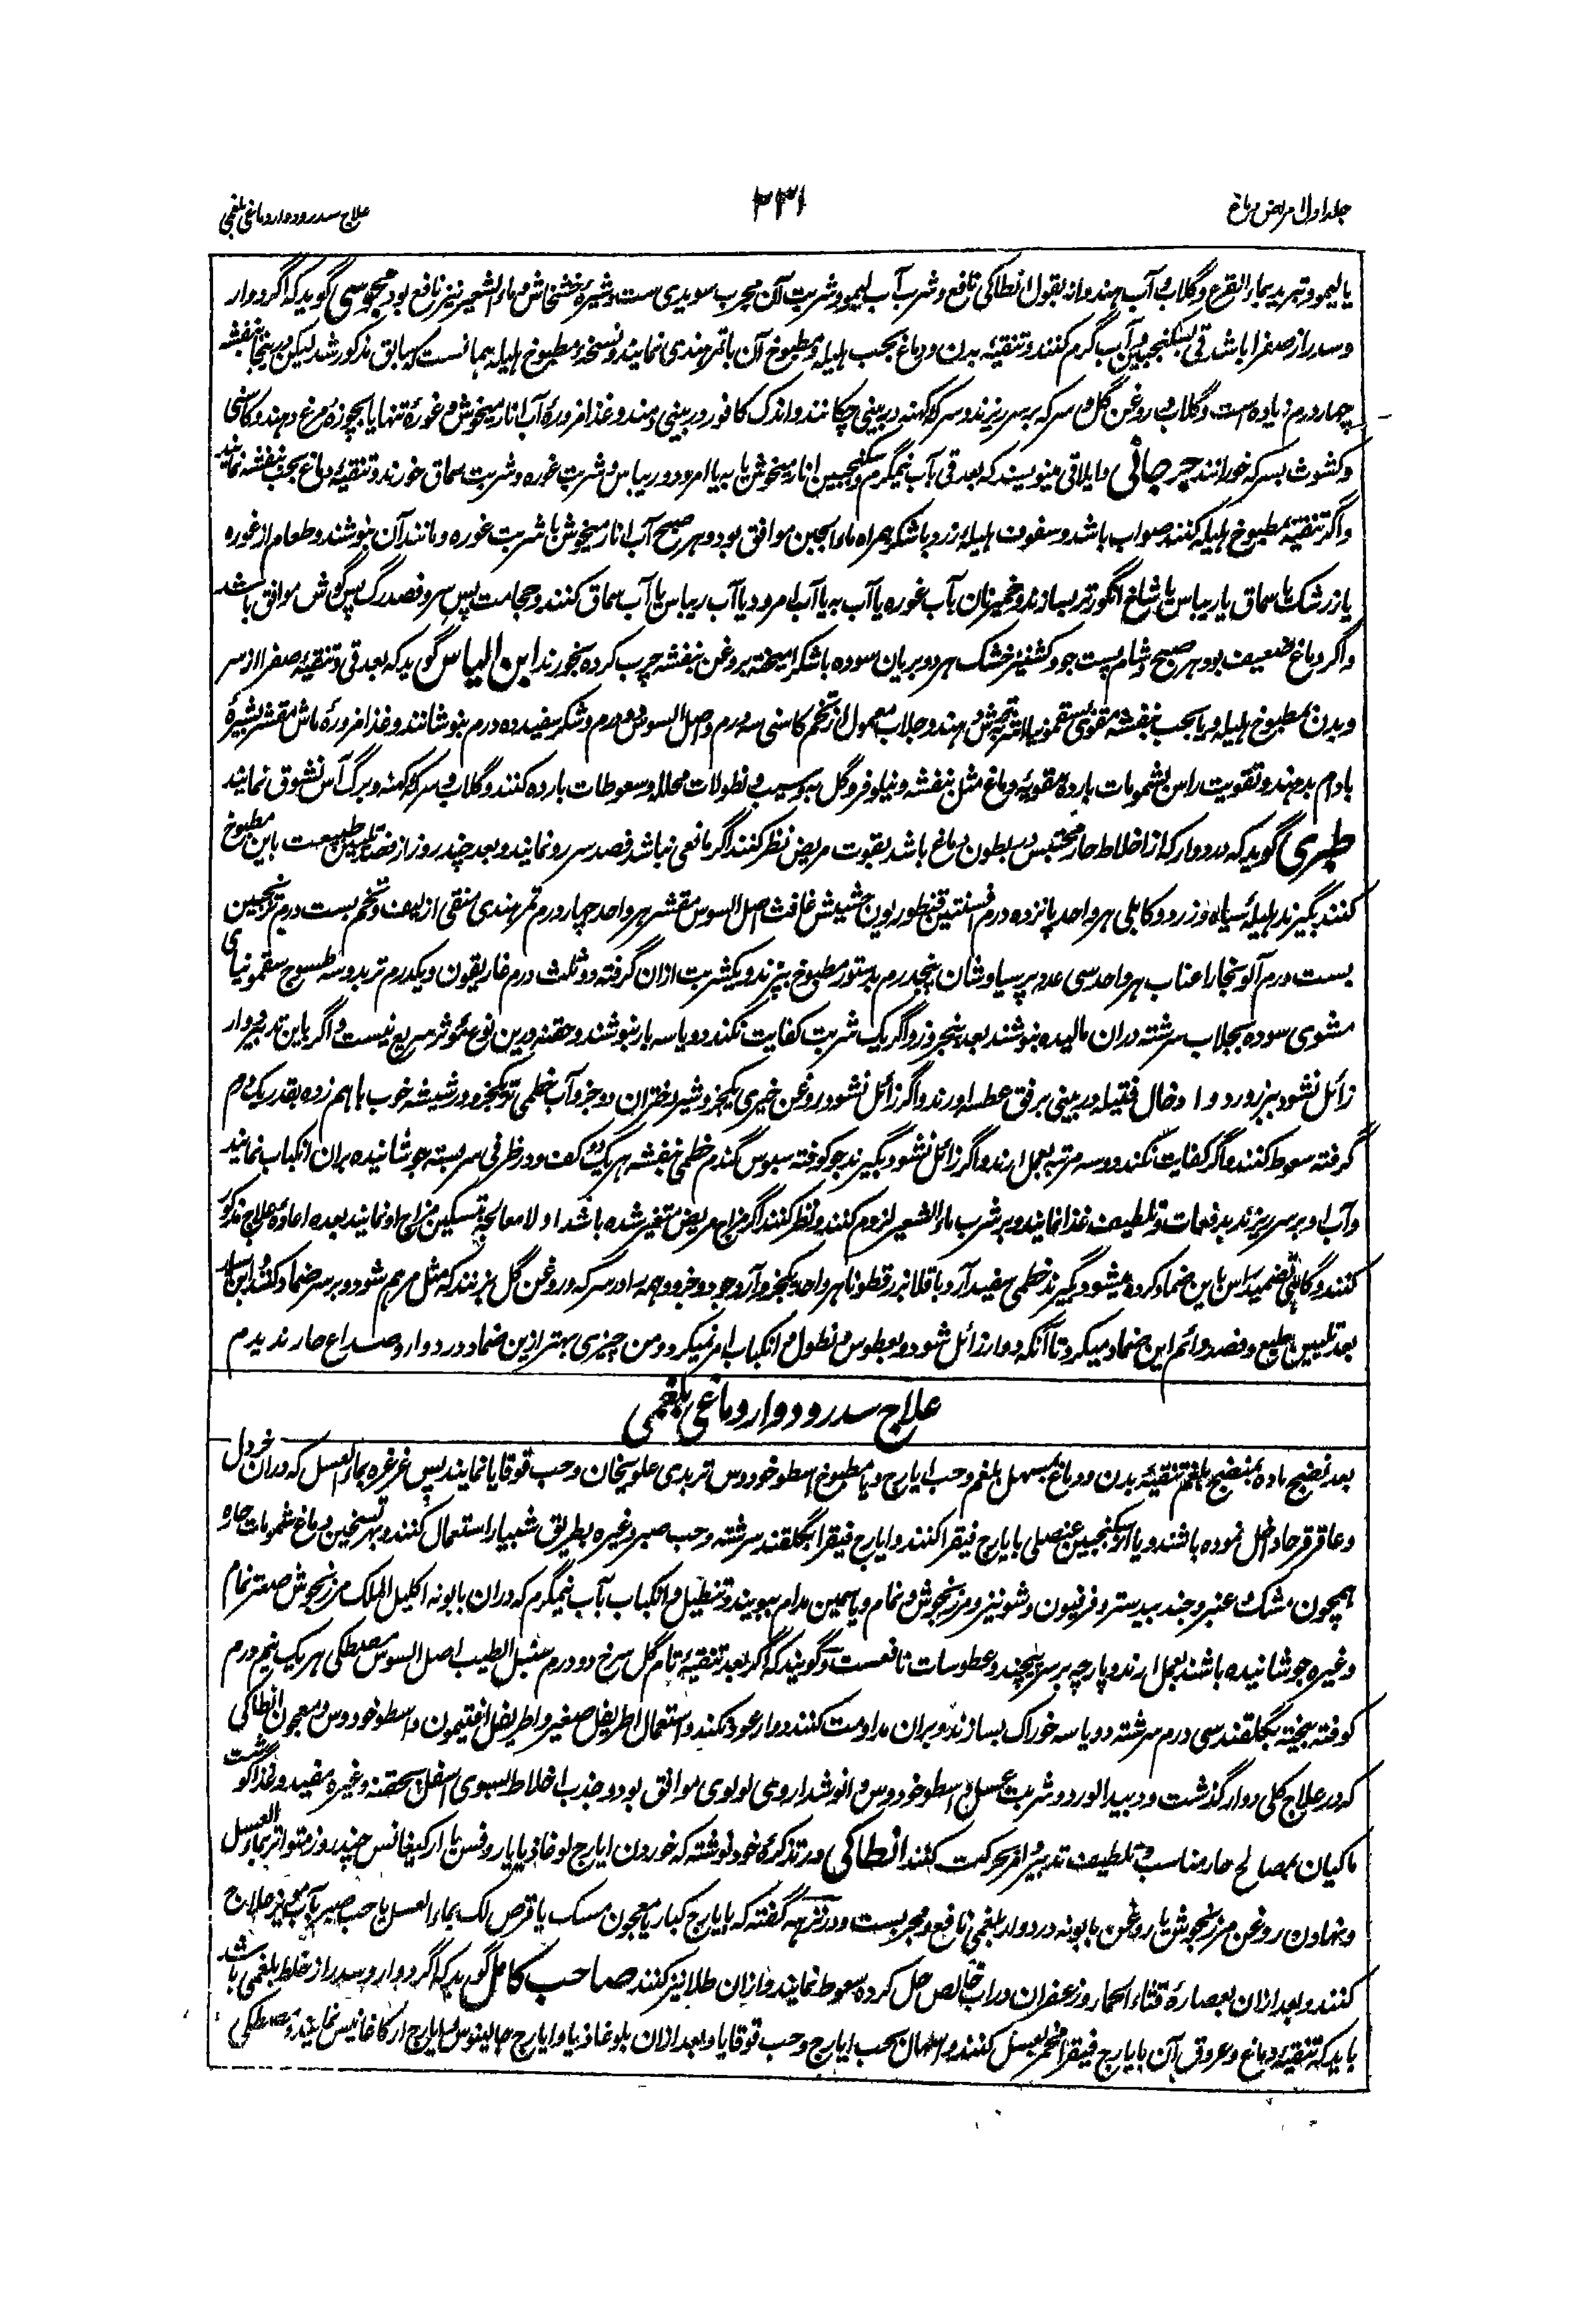 جلد اول امراض دماغ
۳۳۱
علاج سدر و دوار دماغی بلغمی
یا لیمو و تبرید بماء القرع و گلاب و آب هندوانه بقول انطاکی نافع و شرب آب لیمو و شربت آن مجرب سویدی ست و شیرهٔ خشخاش و ماء الشعیر نیز نافع بود مجوسی گوید که اگر دوار
و سدر از صفرا باشد قی بسکنجبین و آب گرم کنند و تنقیهٔ بدن و دماغ بحب هلیله و مطبوخ آن با تمر هندی نمایند و نسخهٔ مطبوخ هلیله همانست که سابق مذکور شد لیکن درینجا بنفشه
چهار درم زیاده است و گلاب و روغن گل و سرکه بر سر ریزند و سرکهٔ کهنه در بینی چکانند و اندک کافور در بینی دمند و غذا مزورهٔ آب انار میخوش و غوره تنها یا بچوزهٔ مرغ دهند و کاسنی
و کشوث بسرکه خورانند جرجانی و ایلاقی مینویسند که بعد قی بآب نیمگرم و سکنجبین انار میخوش یا به یا امرود و ریباس و شربت غوره و شربت سماق خورند و تنقیهٔ دماغ بحب بنفشه نمایند
و اگر تنقیه بمطبوخ هلیله کنند صواب باشد و سفوف هلیلهٔ زرد با شکر همراه ماء الجبن موافق بود و هر صبح آب انار میخوش با شربت غوره و مانند آن بنوشند و طعام از غوره
یا زرشک یا سماق یا ریباس یا شاخ انگور تر بسازند و خمیر نان بآب غوره یا آب به یا آب امرود یا آب ریباس یا آب سماق کنند و حجامت پس سر و فصد رگ پس گوش موافق باشد
و اگر دماغ ضعیف بود هر صبح و شام پست جو و کشنیز خشک هر دو بریان سوده با شکر آمیخته بروغن بنفشه چرب کرده بخورند ابن الیاس گوید که بعد قی و تنقیهٔ صفرا از سر
و بدن بمطبوخ هلیله و یا بحب بنفشه مقوی بسقمونیا دهند و جلاب معمول از تخم کاسنی سه درم و اصل السوس دو درم و شکر سفید ده درم بنوشانند و غذا مزورهٔ ماش مقشر بشیرهٔ
بادام بدهند و تقویت راس بشمومات باردهٔ مقویهٔ دماغ مثل بنفشه و نیلوفر و گل به و سیب و نطولات محلله و سعوطات بارده کنند و گلاب و سرکهٔ کهنه و برگ آس نشوق نمایند
طبری گوید که در دوار که از اخلاط حار محتبس در بطون دماغ باشد بقوت مریض نظر کنند اگر مانعی نباشد فصد سر رو نمایند و بعد چند روز از فصد تلیین طبیعت باین مطبوخ
کنند بگیرند هلیلهٔ سیاه و زرد و کابلی هر واحد پانزده درم افسنتین قنطوریون حشیش غافث اصل السوس مقشر هر واحد چهار درم تمر هندی منقی از لیف و تخم بست درم ترنجبین
بست درم آلو بخارا عناب هر واحد سی عدد پرسیاوشان پنجدرم بدستور مطبوخ بپزند و یکشربت ازان گرفته دو ثلث درم غاریقون و یکدرم تربد و سه طسوج سقمونیای
مشوی سوده بجلاب سرشته دران مالیده بنوشند بعد پنجروز و اگر یک شربت کفایت نکند دو یا سه بار بنوشند و حقنه درین نوع مؤثر سریع نیست و اگر باین تدبیر دوار
زائل نشود بزور دوا ادخال فتیله در بینی برفق عطسه آورند و اگر زائل نشود روغن خیری یکجزو شیر دختران دو جزو آب خطمی تر یکجزو در شیشه خوب باهم زده بقدر یکدرم
گرفته سعوط کنند و اگر کفایت نکند دو سه مرتبه بعمل آرند و اگر زائل نشود بگیرند جو کوفته سبوس گندم خطمی بنفشه هر یک کف و در ظرفی سر بسته جوشانیده بران انکباب نمایند
و آب او بر سر ریزند بدفعات و تلطیف غذا نمایند و بر شرب ماء الشعیر لزوم کنند و نظر کنند اگر مزاج مریض متغیر شده باشد اولا معالجهٔ تسکین مزاج او نمایند بعده اعادهٔ علاج مذکور
کنند و گاهی تضمید راس باین ضماد کرده میشود بگیرند خطمی سفید آرد باقلا بزرقطونا هر واحد یکجزو آرد جو دو جزو و همه را در سرکه و روغن گل بپزند که مثل مرهم شود و بر سر ضماد کنند
بعد تلیین طبع و فصد دائم این ضماد میکرد تا آنکه دوار زائل شود و بعطوس و نطول و انکباب امر نمیکرد و من چیزی بهتر ازین ضماد در دوار و صداع حار ندیدم
علاج سدر و دوار دماغی بلغمی
بعد نضج ماده بمنضج بلغم تنقیهٔ بدن و دماغ بمسهل بلغم و حب ایارج و یا مطبوخ اسطوخودوس تربدی علویخان و حب قوقایا نمایند پس غرغره بماء العسل که دران خردل
و عاقرقرحا داخل نموده باشند و یا از سکنجبین عنصلی با یارج فیقرا کنند و ایارج فیقرا بگلقند سرشته و حب صبر و غیره بطریق شبیار استعمال کنند و بهر تسخین دماغ شمومات حاره
همچون مشک عنبر و جند بیدستر و فرفیون و شونیز و مرزنجوش و نمام و یاسمین مدام ببویند و تنطیل و انکباب بآب نیمگرم که دران بابونه اکلیل الملک مرزنجوش صعتر نمام
و غیره جوشانیده باشند بعمل آرند و پارچه بر سر پیچند و عطوسات نافعست و گویند که اگر بعد تنقیهٔ تام گل سرخ دو درم سنبل الطیب اصل السوس مصطکی هر یک نیم درم
کوفته بیخته بگلقند سی درم سرشته دو یا سه خوراک بسازند و بران مداومت کنند دوار عود نکند و استعمال اطریفل صغیر و اطریفل افتیمون و اسطوخودوس و معجون انطاکی
که در علاج کلی دوار گذشت و دبید الورد و شربت عسل و اسطوخودوس و انوشدارو می لولوی موافق بود و جذب اخلاط بسوی اسفل بحقنه و غیره مفید و غذا گوشت
ماکیان بمصالح حار مناسب و تلطیف تدبیر و امر بحرکت کنند انطاکی در تذکرهٔ خود نوشته که خوردن ایارج لوغاذیا یا روفس یا ارکیغانس چند روز متواتر بماء العسل
و نهادن روغن مرزنجوش یا روغن بابونه در دوار بلغمی نافع و مجربست و در نزهه گفته که بایارج کبار یا معجون مسک یا قرص لک بماء العسل یا حب صبر بآب مویز علاج
کنند و بعد ازان بعصارهٔ قثاء الحمار و زعفران در آب خالص حل کرده سعوط نمایند و ازان طلا نیز کنند صاحب کامل گوید که اگر دوار و سدر از خلط بلغمی باشد
باید که تنقیهٔ دماغ و عروق آن بایارج فیقرا مخمر بعسل کنند و اسهال بحب ایارج و حب قوقایا و بعد ازان بلوغاذیا و ایارج جالینوس و ایارج ارکاغانیس نمایند و مصطکی